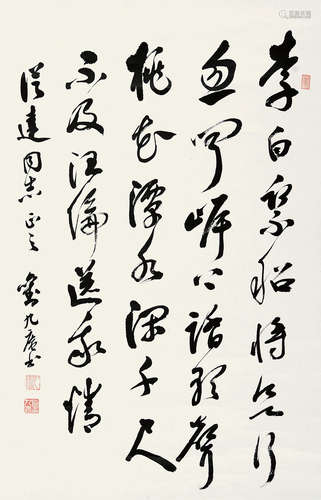 李白乘船將欲行
忽聞岸上踏歌聲
桃花潭水深千尺
不及汪倫送我情
同志正之 九庵书